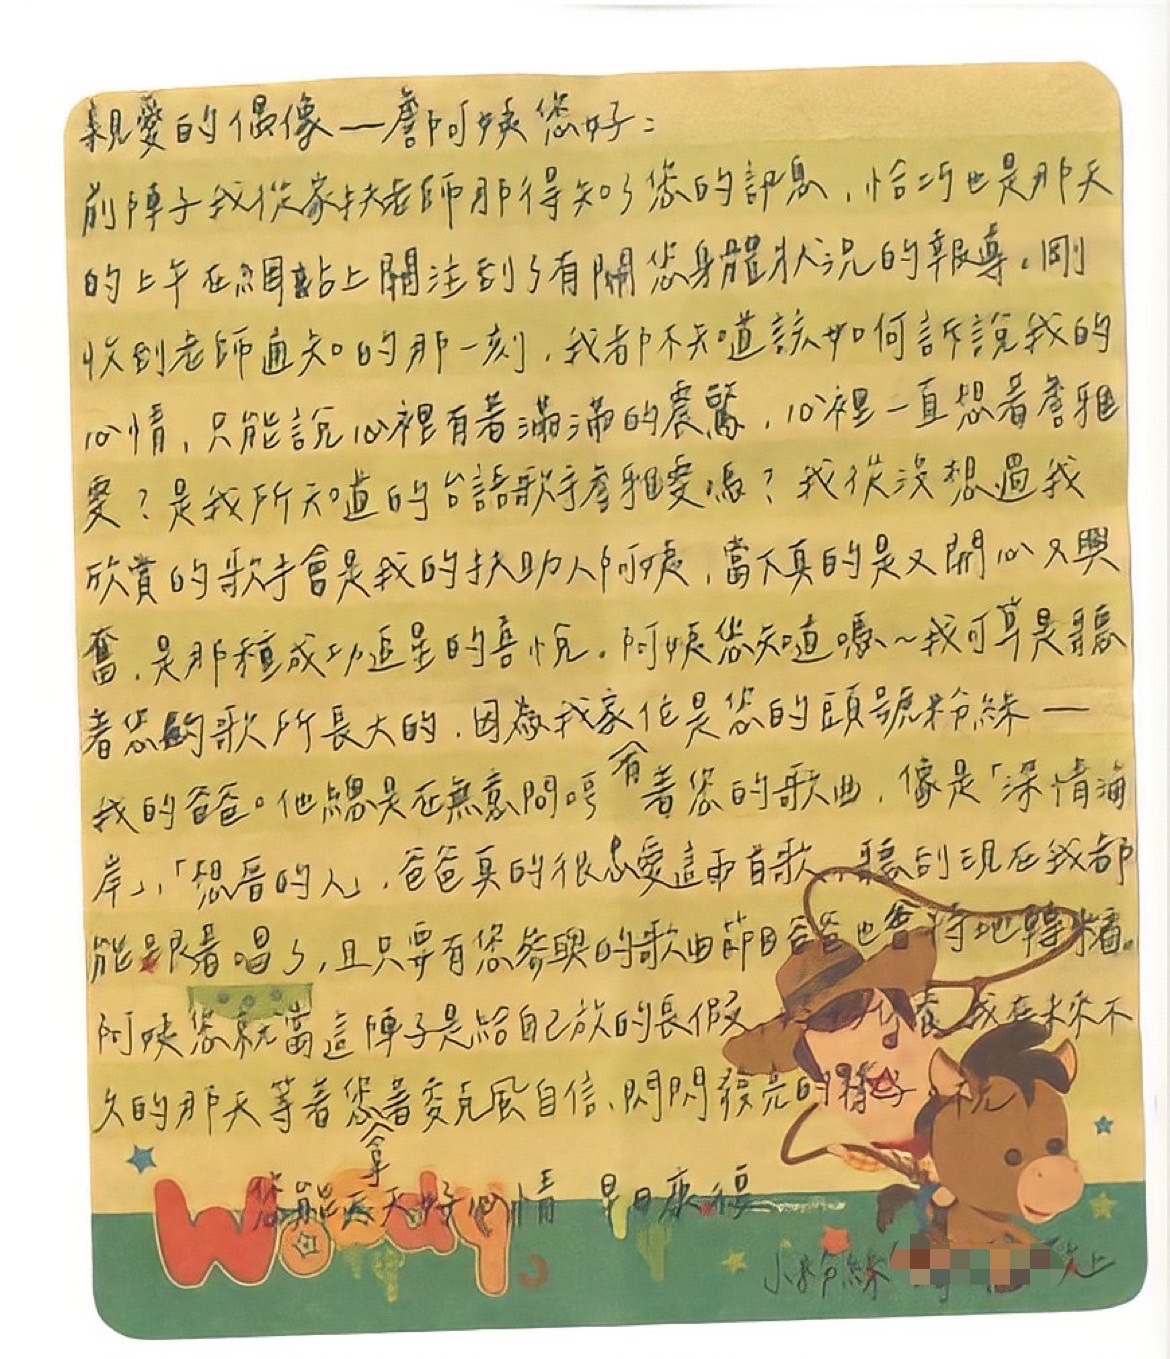 親愛的偶像一詹阿姨您好:
前陣子我從家扶老師那得知了您的訊息,恰巧也是那天
的上午在網站上關注到了有關您身體狀況的報導。剛
收到老師通知的那一刻,我都不知道該如何訴說我的
心情,只能說心裡有著滿滿的震驚,心裡一直想著詹雅
雯?是我所知道的台語歌手詹雅雯嗎?我從沒想過我
欣賞的歌手會是我的扶助人阿姨,當下真的是又開心又興
奮,是那種成功追星的喜悅。阿姨您知道嗎~我可算是聽
著您的歌所長大的,因為我家位是您的頭號粉絲一
我的爸爸。他總是在無意間哼有著您的歌曲,像是「深情海
岸」,「想厝的人」,爸爸真的很愛這兩首歌,聽到現在我都
能跟著唱了,且只要有您參與的歌曲節目爸爸也會特地轉來看。
阿姨您就當這陣子是給自己放的長假 我在未來不
久的那天等著您拿著麥克風自信、閃閃發亮的樣子。祝
您能天天好心情 早日康福
Woody
小粉絲 敬上